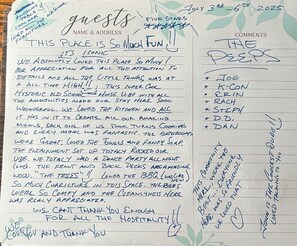 guests
NAME & ADDRESS
FIVE STARS
July 3rd - 6th 2025
COMMENTS
THIS PLACE IS SO MUCH FUN!!
IT'S ICONIC
WE ABSOLUTELY LOVED THIS PLACE SO MUCH!
OUR APPRECIATION FOR ALL THE ATTENTION TO
DETAILS AND ALL THE LITTLE THINGS WAS AT
A ALL TIME HIGH!! THIS SUPER COOL
HISTORIC HOUSE VIBE WITH ALL
THE AMMENITIES MADE OUR STAY HERE SOOO
WONDERFUL. WE LOVED THE KITCHEN AND ALL
IT HAS IN IT TO CREATE ALL OUR AMAZING
MEALS, EACH ONE OF US TOOK TURNS COOKING
AND EVERY MEAL WAS FANTASTIC. THE BEDROOMS
WERE GREAT, LOVED THE AND FANCY SOAP
THE ENTERTAINMENT SET UP TOTALLY ROCKED OUR
VIBE. WE TOTALLY HAD A DANCE PARTY ALL NIGHT
LONG. THE FRONT AND BACK DECKS ARE AMAZING,
WOW. "THE TREES"! LOVED THE BBQ
SO MUCH IN THIS SPACE. THE BEDS
WERE SO COMFY AND THE CLEANLYNESS HERE
WAS REALLY APPRECIATED.
WE CAN'T THANK YOU ENOUGH
FOR ALL THE HOSPITALITY!!
LOVE YOU AND THANK YOU
THE
PEEPS
JOE
K-CON
ERIN
RACH
STEPH
D.D.
DAN
THIS COMMUNITY